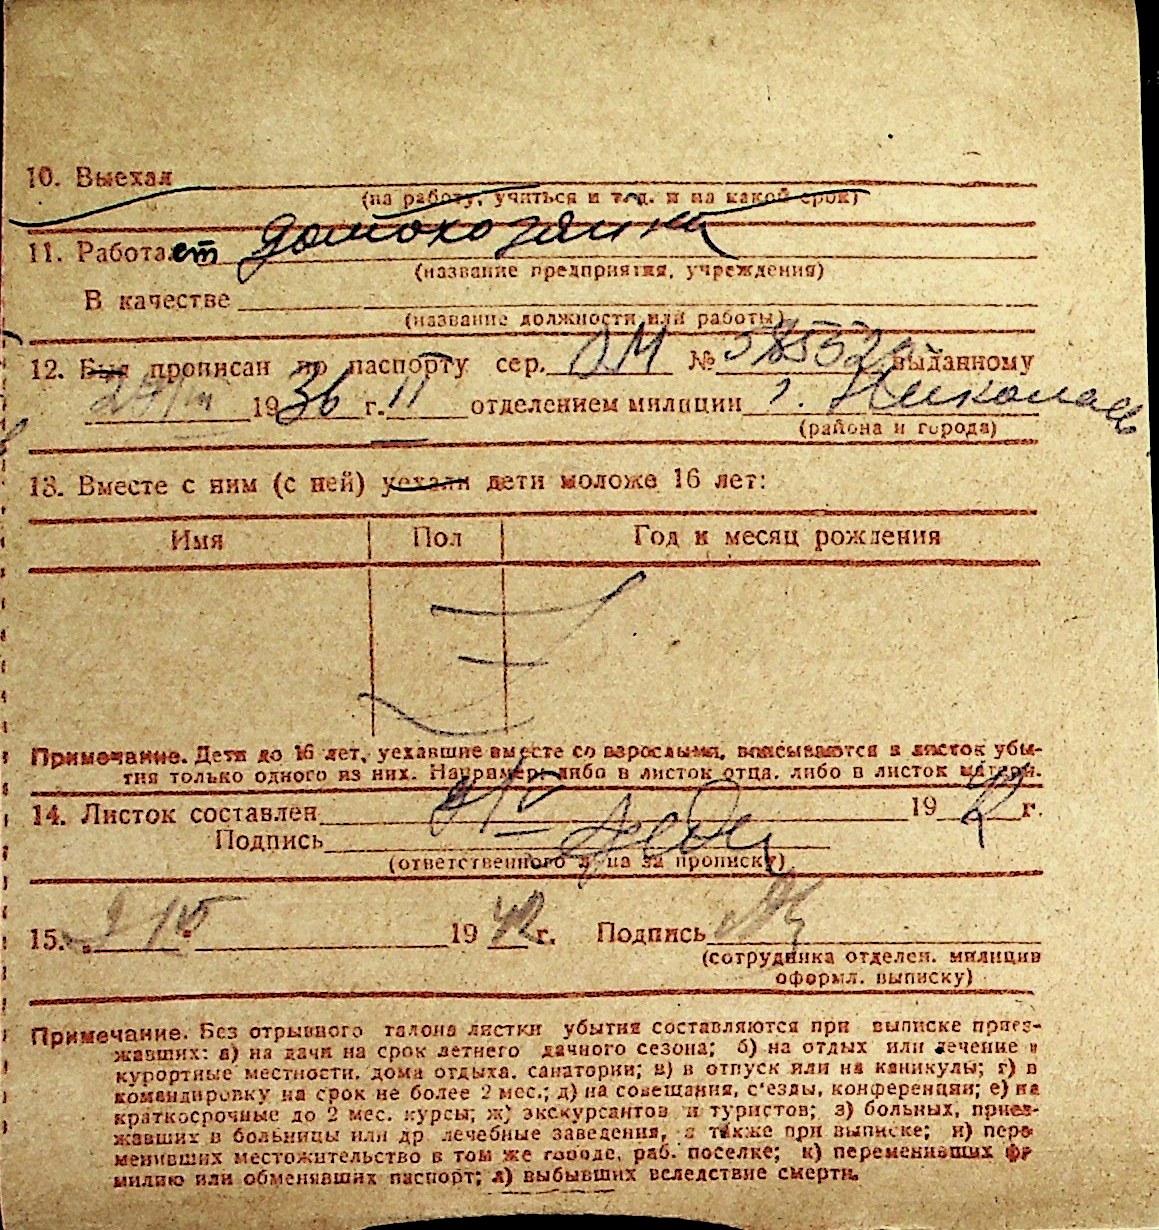 10. Выехал
(на работу, учиться и т.д. и на какой срок)
11. Работает домохозяйка
(название предприятия, учреждения)
В качестве
(название должности или работы)
12. Был прописан по паспорту сер. ОМ № выданному
1936 г. 11 отделением милиции г. Николаев
(района и города)
13. Вместе с ним (с ней) уехали дети моложе 16 лет:
Имя Пол Год и месяц рождения
Примечание. Дети до 16 лет, уехавшие вместе со взрослыми, вписываются в листок убы-
тия только одного из них. Например: либо в листок отца, либо в листок матери.
14. Листок составлен 2/V 1942 г.
Подпись
(ответственного за прописку)
15. 2/V 1942 г. Подпись
(сотрудника отделен. милиции
оформл. выписку)
Примечание. Без отрывного талона листки убытия составляются при выписке приез-
жавших: а) на дачи на срок летнего дачного сезона; б) на отдых или лечение в
курортные местности, дома отдыха, санатории; в) в отпуск или на каникулы; г) в
командировку на срок не более 2 мес.; д) на совещания, с'езды, конференции; е) на
краткосрочные до 2 мес. курсы; ж) экскурсантов и туристов; з) больных, приез-
жавших в больницы или др лечебные заведения, а также при выписке; и) пере
менивших местожительство в том же городе, раб. поселке; к) переменивших фа
милию или обменявших паспорт; л) выбывших вследствие смерти.